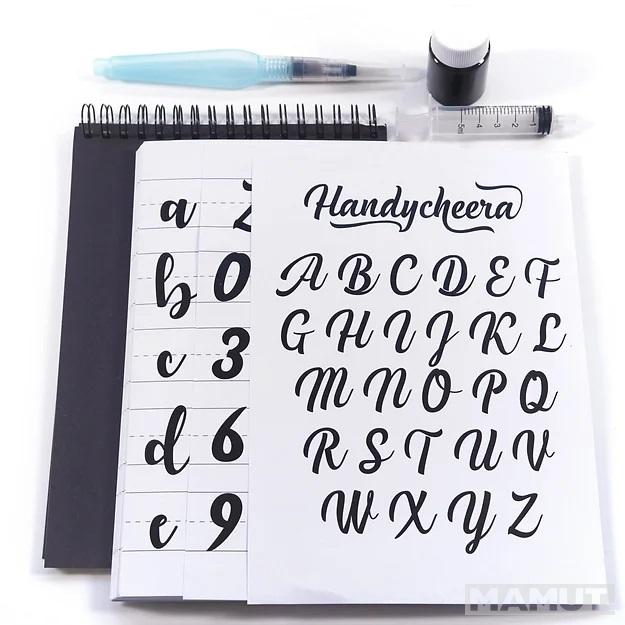 Handycheera
A B C D E F
G H I J K L
M N O P Q
R S T U V
W X Y Z
a
b 0
c 3
d 6
e 9
5ml 4 3 2 1
MAMUT